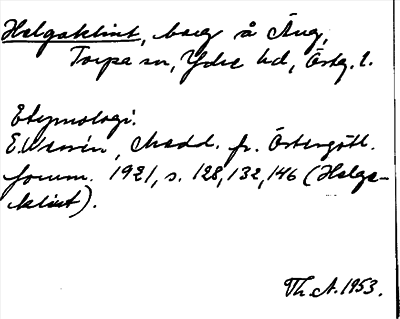 Helgaklint, berg å Äng,
Torpa sn, Ydre hd, Östg. l.
Etymologi.
E. Wessén, Medd. fr. Östergötl.
fornm. 1921, s. 128, 132, 146 (Helga-
klint).
Th. A. 1953.